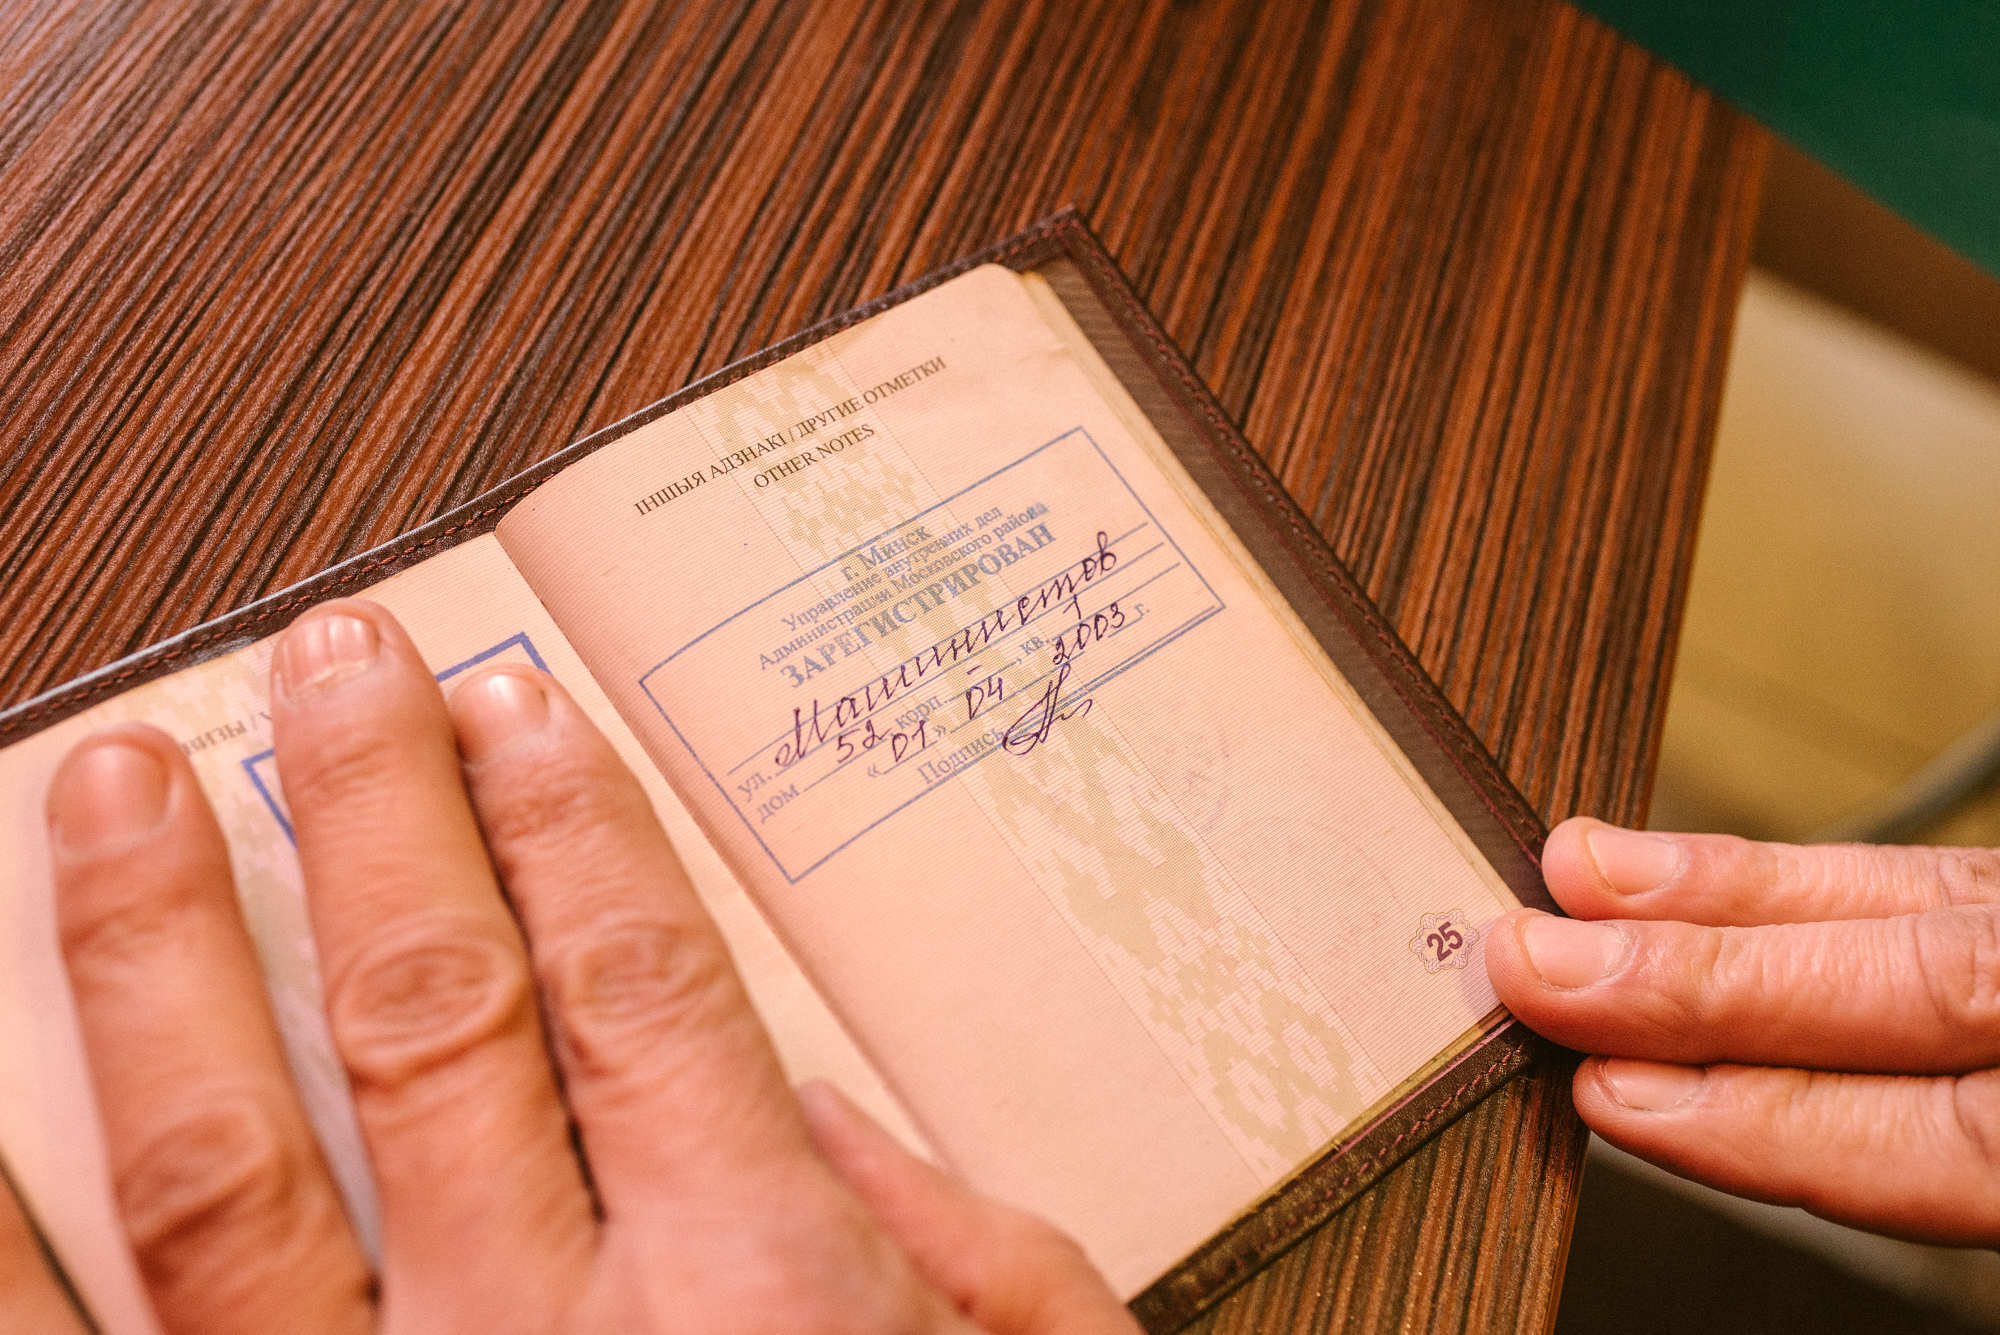 ВИЗЫ /
ІНШЫЯ АДЗНАКІ / ДРУГИЕ ОТМЕТКИ
OTHER NOTES
г. Минск
Управление внутренних дел
Администрации Московского района
ЗАРЕГИСТРИРОВАН
ул. Машинистов
дом 52 корп. – , кв. 1
« 01 » 04 2003 г.
Подпись
25